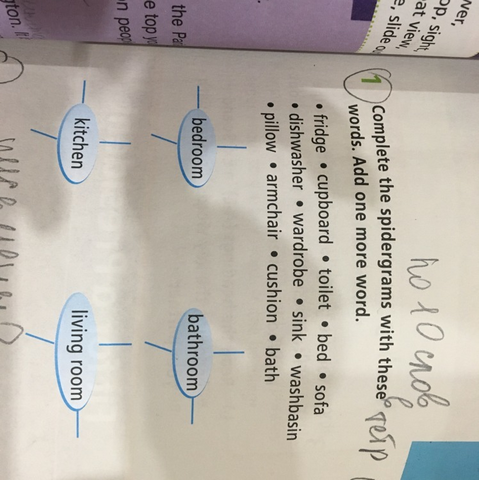 wer,
op, sigh
at view
e, slide
the Pa
e top yo
n peop
gton. It
по 10 слов
в тетр
1 Complete the spidergrams with these
words. Add one more word.
• fridge • cupboard • toilet • bed • sofa
• dishwasher • wardrobe • sink • washbasin
• pillow • armchair • cushion • bath
bedroom
bathroom
kitchen
living room